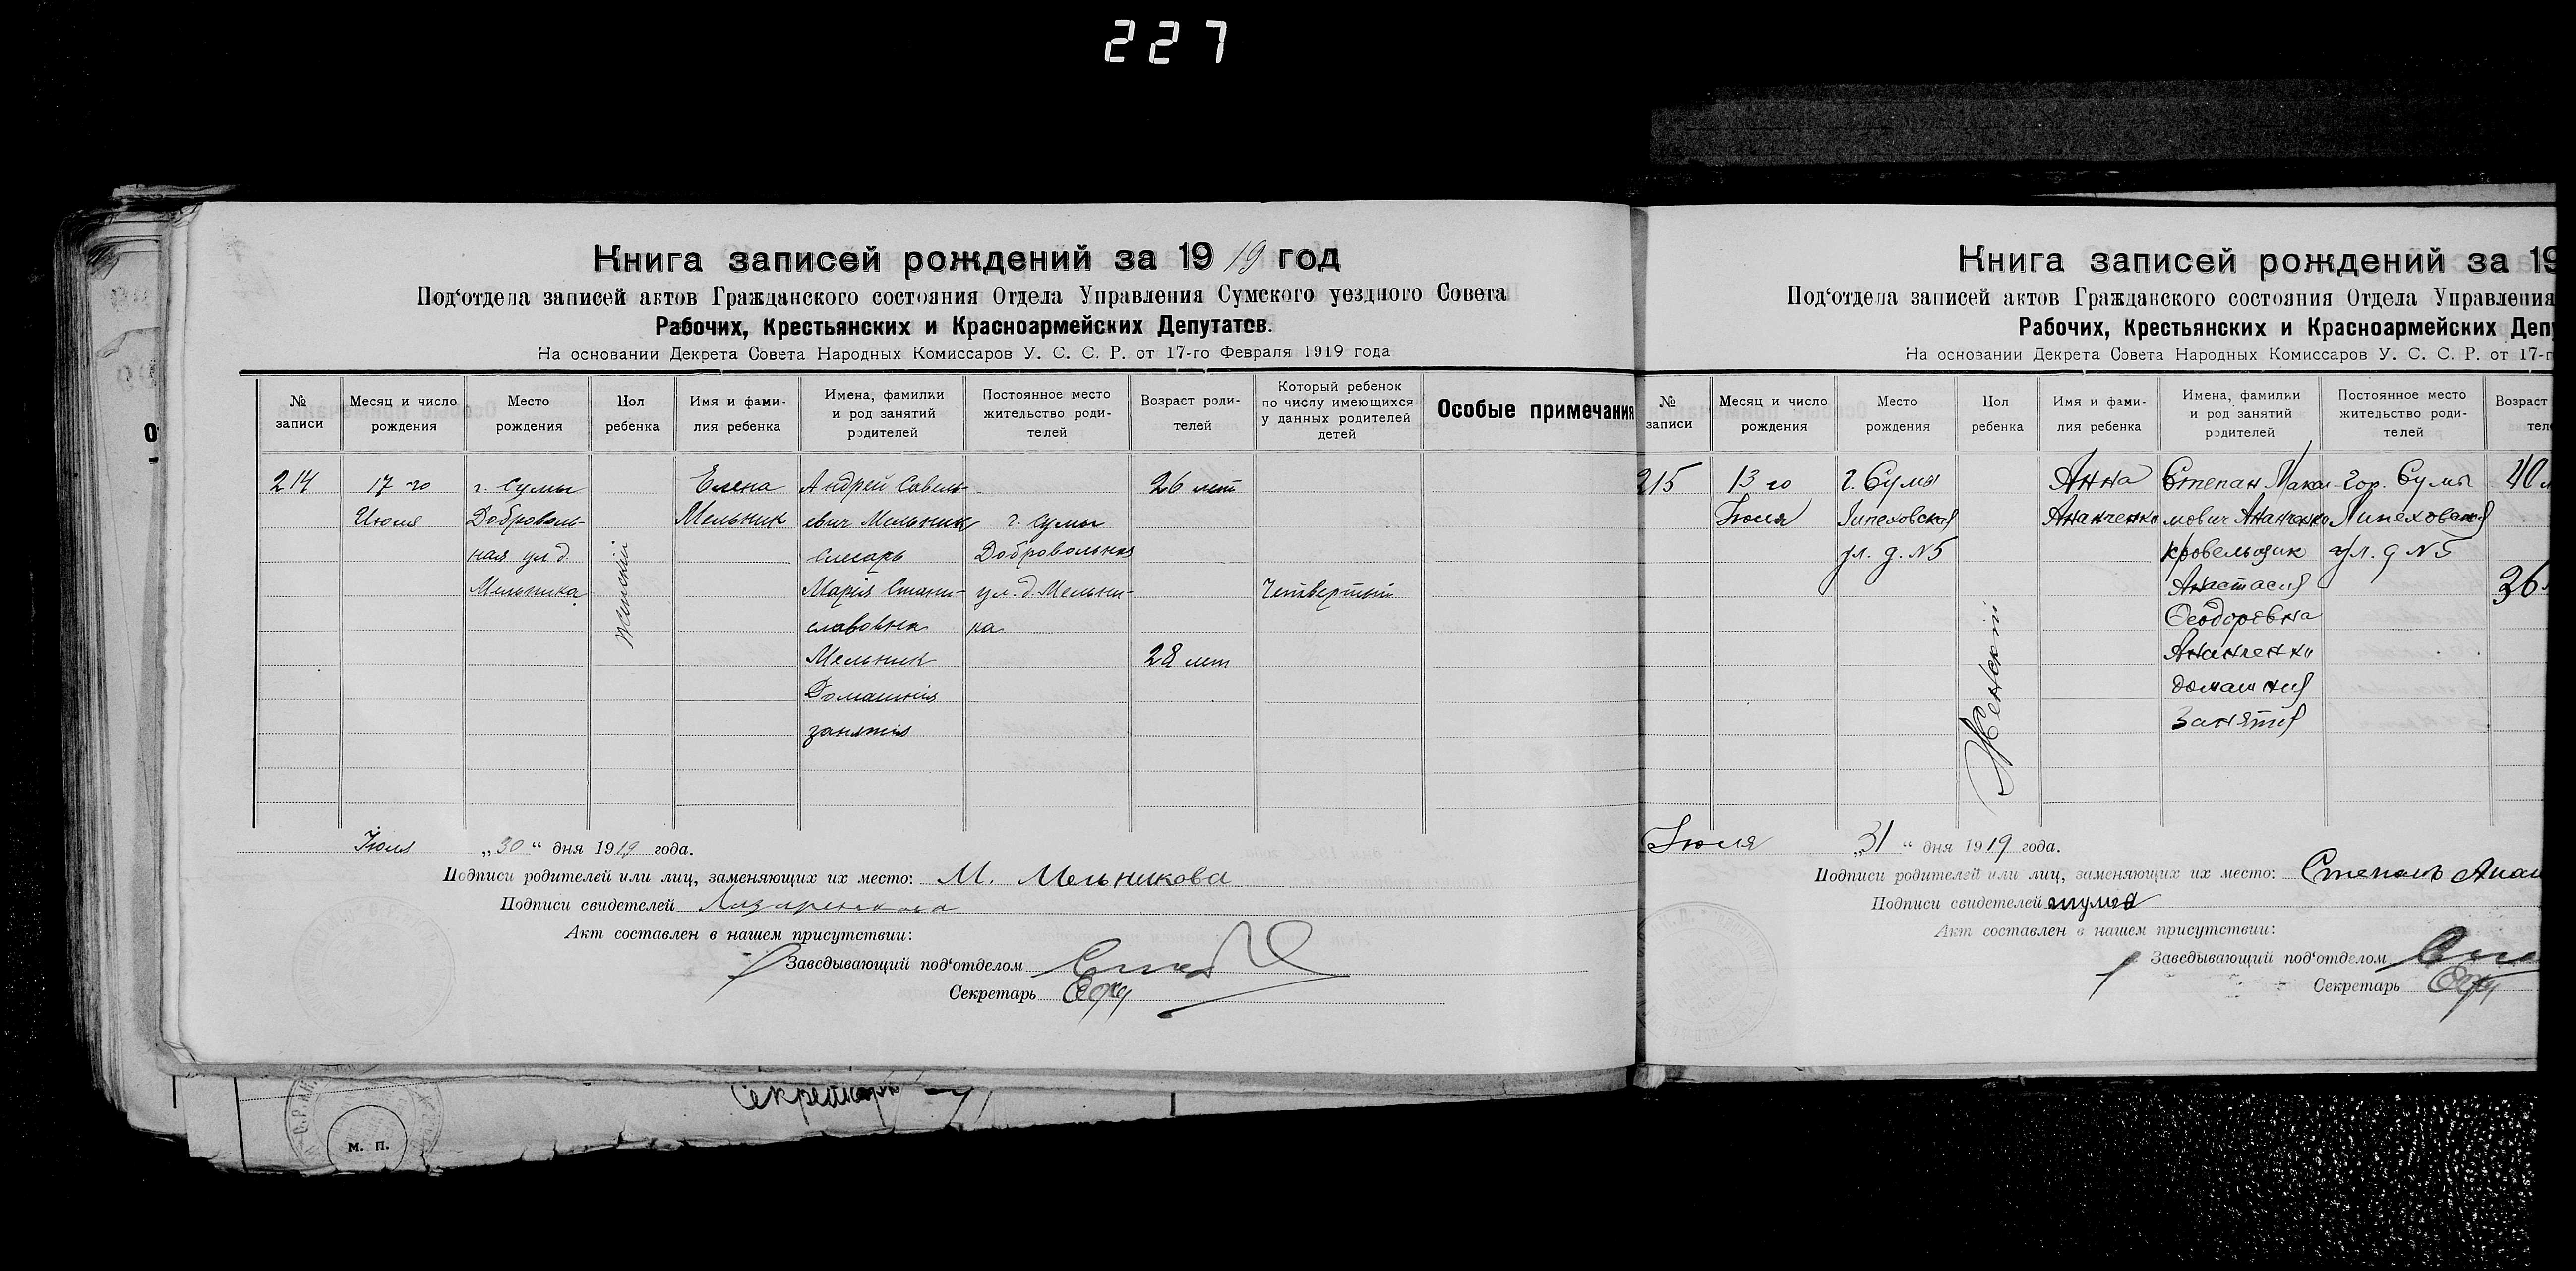 227
Книга записей рождений за 1919 год
Под‘отдела записей актов Гражданского состояния Отдела Управления Сумского уездного Совета
Рабочих, Крестьянских и Красноармейских Депутатов.
На основании Декрета Совета Народных Комиссаров У. С. С. Р. от 17-го Февраля 1919 года
№ записи
Месяц и число рождения
Место рождения
Пол ребенка
Имя и фами-
лия ребенка
Имена, фамилии
и род занятий
родителей
Постоянное место
жительство роди-
телей
Возраст роди-
телей
Который ребенок
по числу имеющихся
у данных родителей
детей
Особые примечания
214
17 го
Июля
г. Сумы
Доброволь-
ная ул д.
Мельника
Женский
Елена
Мельник
Андрей Савель-
евич Мельник
слесарь
Марія Стани-
славовна
Мельник
Домашнія
занятія
г. Сумы
Добровольная
ул. д. Мельни-
ка
26 лет
28 лет
Четвертый
Іюля „30“ дня 1919 года.
Подписи родителей или лиц, заменяющих их место: М. Мельникова
Подписи свидетелей
Акт составлен в нашем присутствии:
Заведывающий под‘отделом
Секретарь
Книга записей рождений за 19
Под‘отдела записей актов Гражданского состояния Отдела Управления
Рабочих, Крестьянских и Красноармейских Деп
На основании Декрета Совета Народных Комиссаров У. С. С. Р. от 17-г
№ записи
Месяц и число рождения
Место рождения
Пол ребенка
Имя и фами-
лия ребенка
Имена, фамилии
и род занятий
родителей
Постоянное место
жительство роди-
телей
Возраст
тел
215
13 го
Іюля
г. Сумы
Липеховская
ул. д. №5
Женский
Анна
Ананченко
Степан Мака-
мович Ананченко
кровельщик
Анастасия
Феодоровна
Ананченко
домашния
Занятия
гор. Сумы
Липеховская
ул. д №5
40
36
Іюля „31“ дня 1919 года.
Подписи родителей или лиц, заменяющих их место: Степанъ Анан
Подписи свидетелей
Акт составлен в нашем присутствии:
Заведывающий под‘отделом
Секретарь
Секретарь
М. П.